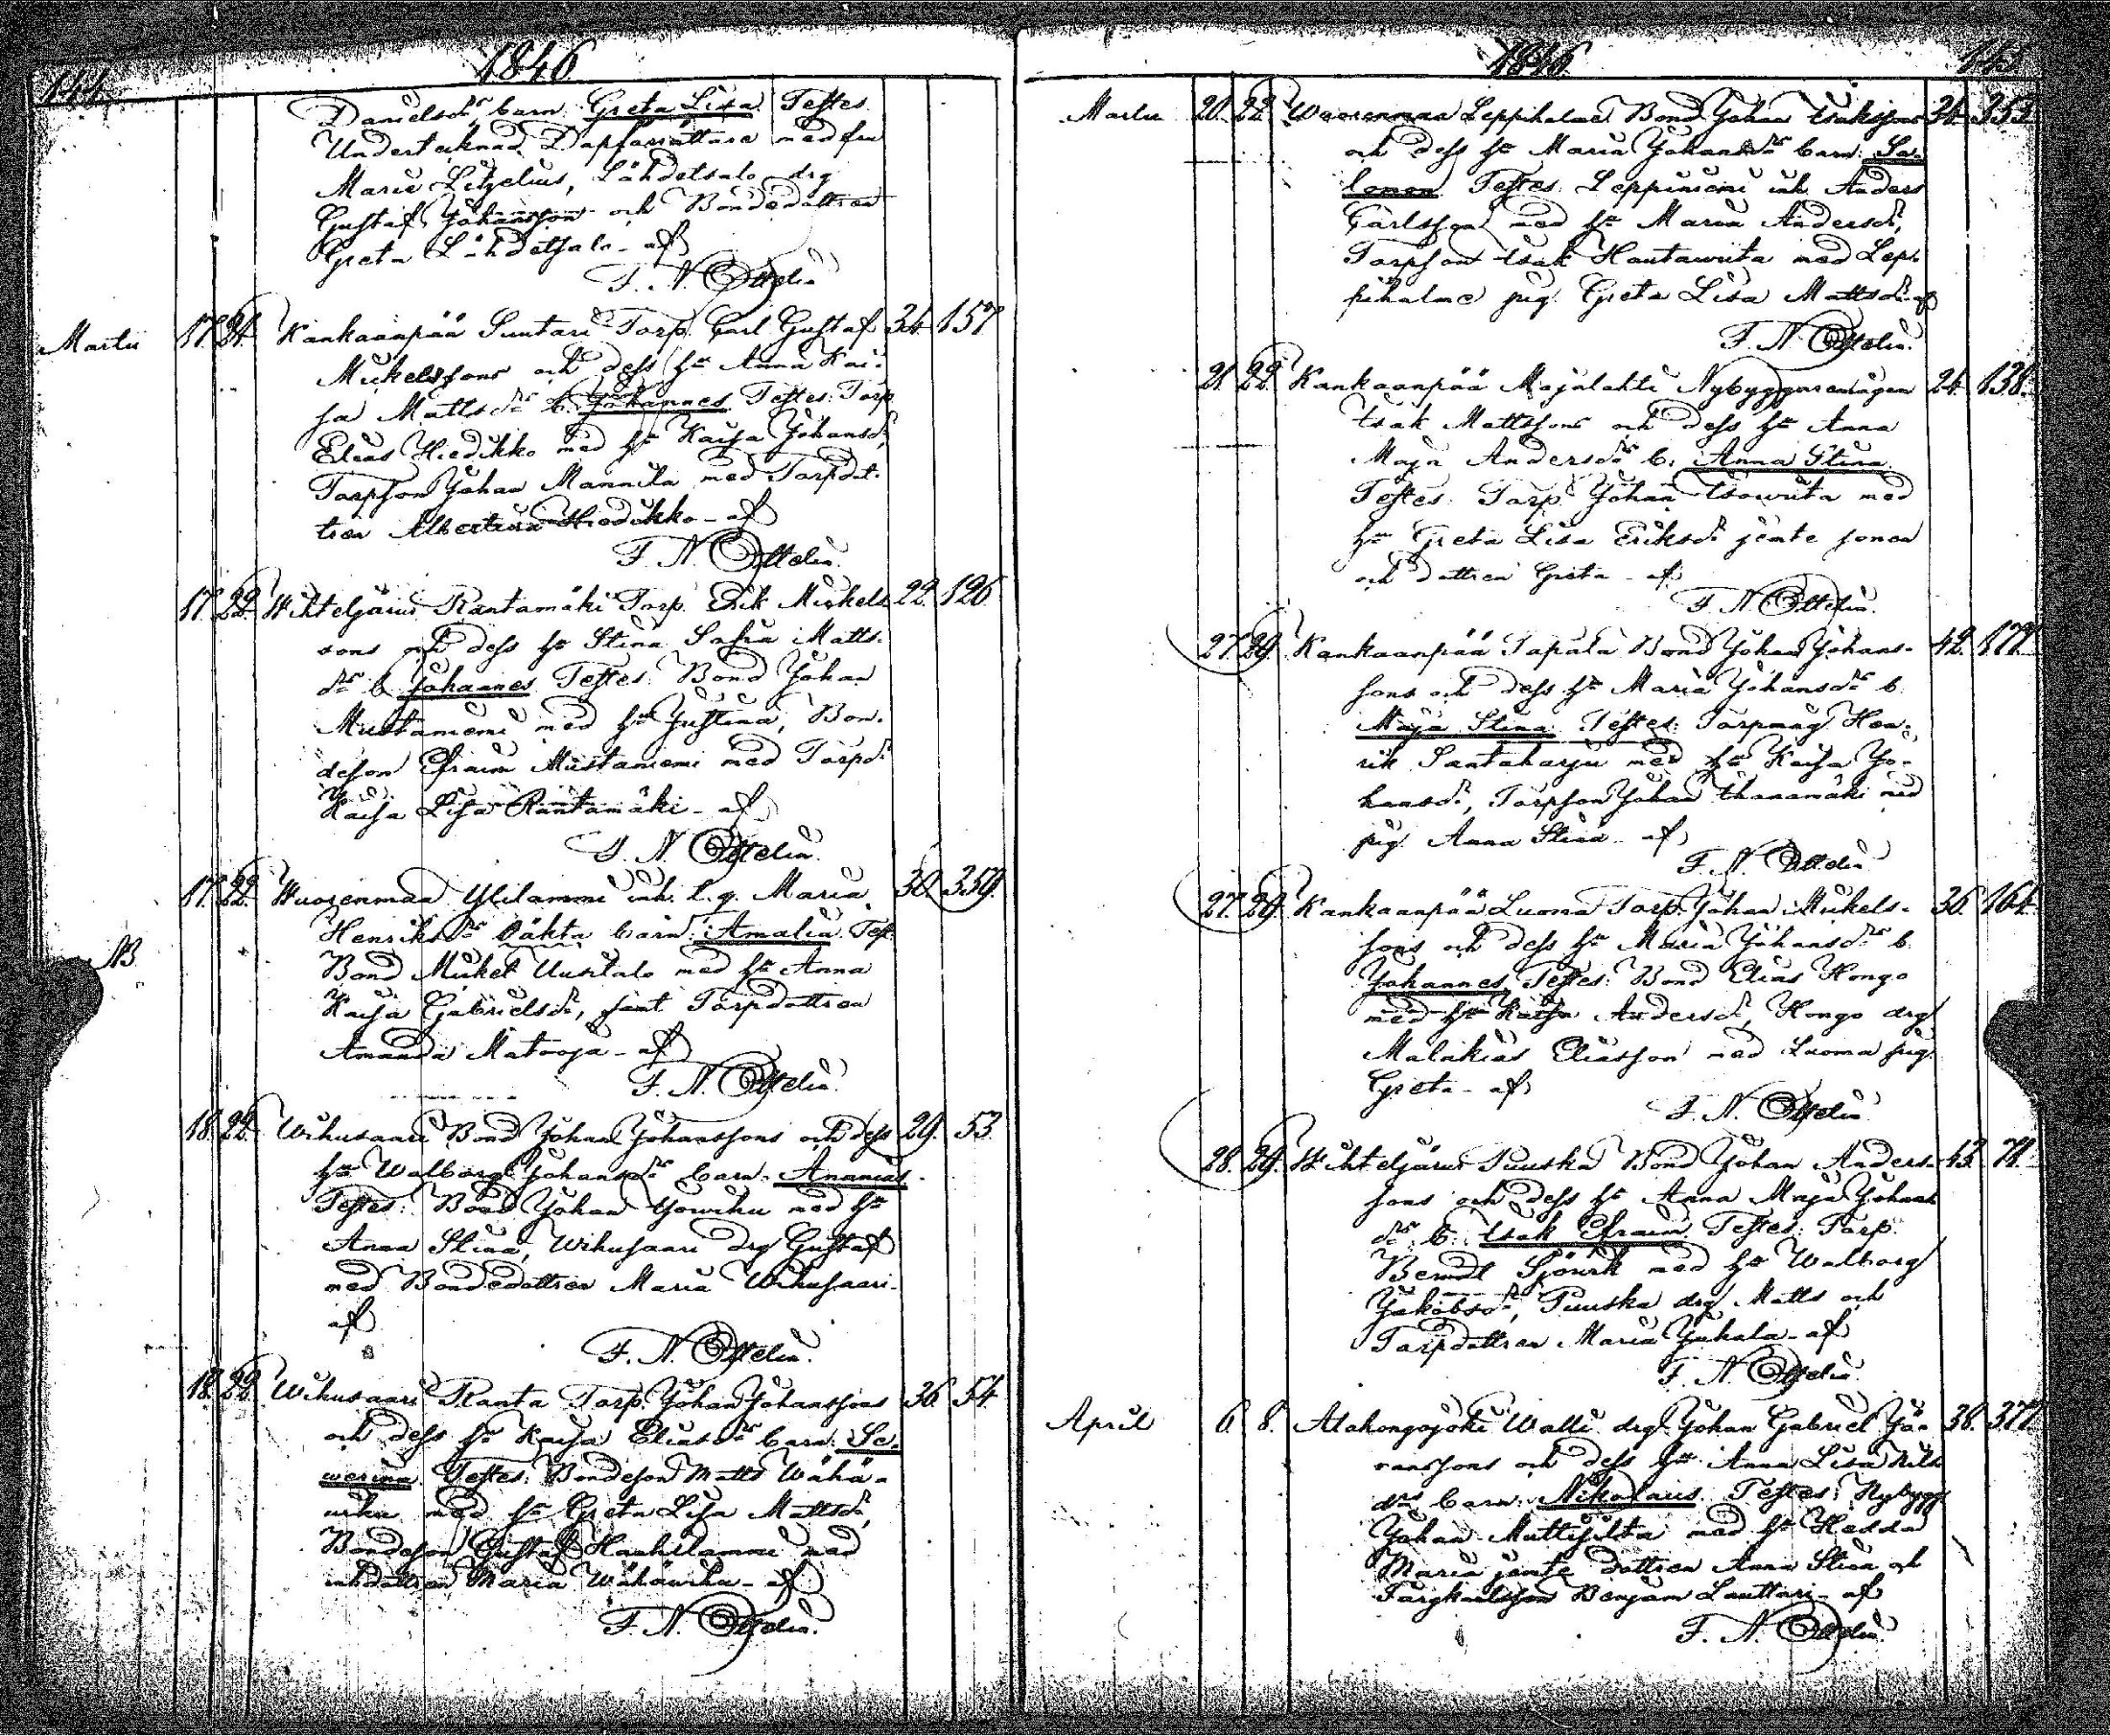 144.
1846
Danielsdr barn Greta Lisa Testes
Undertecknad Dopförrättare med fru
Marie Litzelius, Lähdetsalo drg
Gustaf Johansson och Bondedottren
Greta Lähdetsalo - af
F. N. Ottelin.
Martii 17. 21. Kankaanpää Suutari Torp. Carl Gustaf 34. 157
Mickelssons och dess hu Anna Kai-
sa Mattsdr b. Johannes Testes: Torp
Elias Hiedikko med hu Kaisa Johansdr,
Torpson Johan Mannila med Torpdot-
tren Albertina Hiedikko - af
F. N. Ottelin.
17. 22. Wihteljärvi Rantamäki Torp. Erik Mickels 22. 126
sons och dess hu Stina Sofia Matts-
dr b. Johannes Testes: Bond Johan
Mustaniemi med hu Justina, Bon-
deson Efraim Mustaniemi med Torpdr
Kaisa Lisa Rantamäki - af
F. N. Ottelin.
17. 22. Wuorenmaa Ylilammi inh. l. q. Maria 30. 359.
NB
Henriksdr oäkta barn: Amalia Test
Bond Mickel Uusitalo med hu Anna
Kaisa Gabrielsdr, samt Torpdottren
Amanda Matooja - af
F. N. Ottelin.
18. 22. Wihusaari Bond Johan Johanssons och dess 29. 53
hu Walborg Johansdr barn. Ananias.
Testes: Bond Johan Yowihu med hu
Anna Stina, Wihusaari drg Gustaf
med Bondedottren Maria Wihusaari -
af
F. N. Ottelin.
18. 22. Wihusaari Ranta Torp. Johan Johanssons 36 54
och dess hu Kaisa Eliasdr barn: Se-
werina Testes: Bondeson Matts Wähä-
wihu med hu Greta Lisa Mattsdr,
Bondeson Gustaf Hanhilammi med
inhdottren Maria Wähäwihu - af
F. N. Ottelin.
1846
145
Martii 20. 22. Wuorenmaa Leppihalme Bond Johan Isakssons 36. 353
och dess hu Maria Johansdr barn: Sa-
lomon Testes: Leppiniemi inh. Anders
Carlsson med hu Maria Andersdr,
Torpson Isak Hautawiita med Lep-
pihalme pig. Greta Lisa Mattsdr af
F. N. Ottelin.
21. 22. Kankaanpää Majalahti Nybyggaremågen 24. 138.
Isak Mattssons och dess hu Anna
Maja Andersdr b. Anna Stina
Testes: Torp. Johan Isowiita med
hu Greta Lisa Eriksdr jemte sonen
och dottren Greta - af
F. N. Ottelin.
27. 29. Kankaanpää Tapala Bond Johan Johans- 42. 177
sons och dess hu Maria Johansdr b.
Maja Stina Testes: Torpmåg Hen-
rik Santaharju med hu Kaisa Jo-
hansdr, Torpson Johan Ihanamäki med
pig. Anna Stina - af
F. N. Ottelin
27. 29. Kankaanpää Luoma Torp. Johan Mickels- 36. 164.
sons och dess hu Maria Johansdr b.
Johannes Testes: Bond Elias Hongo
med hu Kaisa Andersdr, Hongo drg
Malakias Eliasson med Luoma pig.
Greta - af
F. N. Ottelin
28. 29. Wihteljärvi Puuska Bond Johan Anders- 43. 71.
sons och dess hu Anna Maja Johans
dr b. Isak Efraim Testes: Torp.
Berndt Sjöwik med hu Walborg
Jakobsdr, Puuska drg Matts och
Torpdottren Maria Juhala - af
F. N. Ottelin.
April 6. 8. Alahongojoki Walli drg Johan Gabriel Jö- 38. 377
ranssons och dess hu Anna Lisa Nils
drs barn: Nikolaus Testes: Nybygg
Johan Mattisilta med hu Hedda
Maria jemte dottren Anna Stina och
Färgkarlsson Benjam Lauttari - af
F. N. Ottelin.